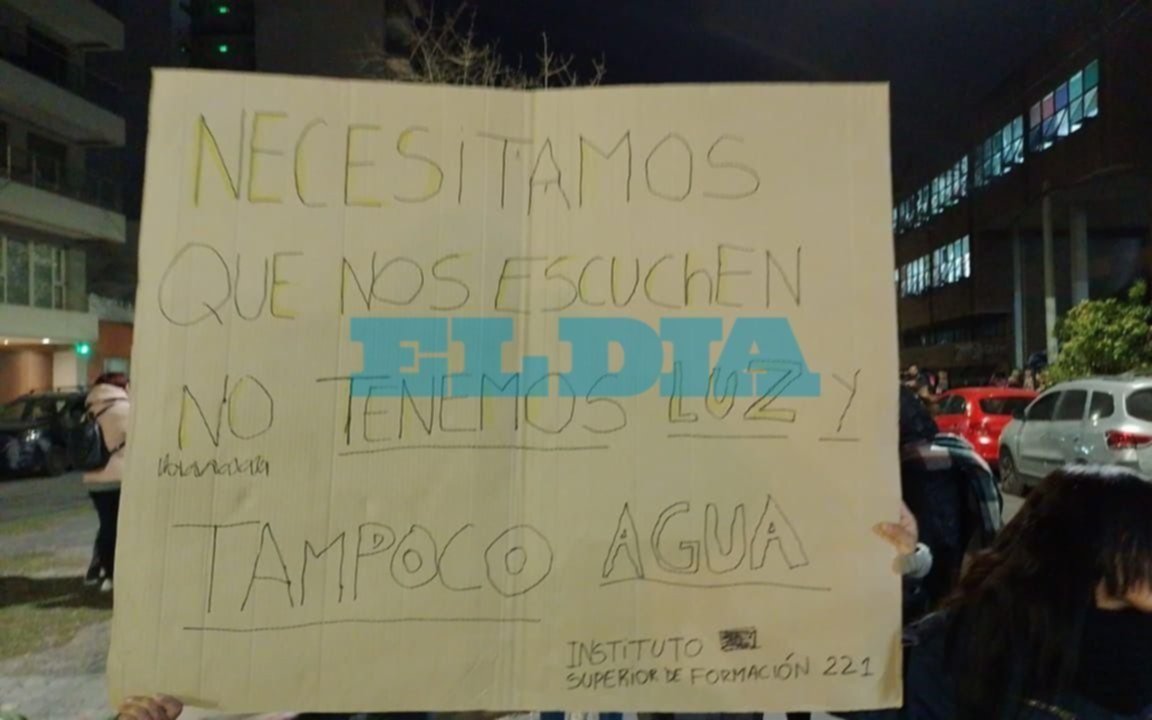 NECESiTAMOS
QUE NOS ESCUChEN
EL DIA
NO TENEMOS LUZ Y
TAMPOCO AGUA
INSTITUTO
SUPERIOR DE FORMACIÓN 221